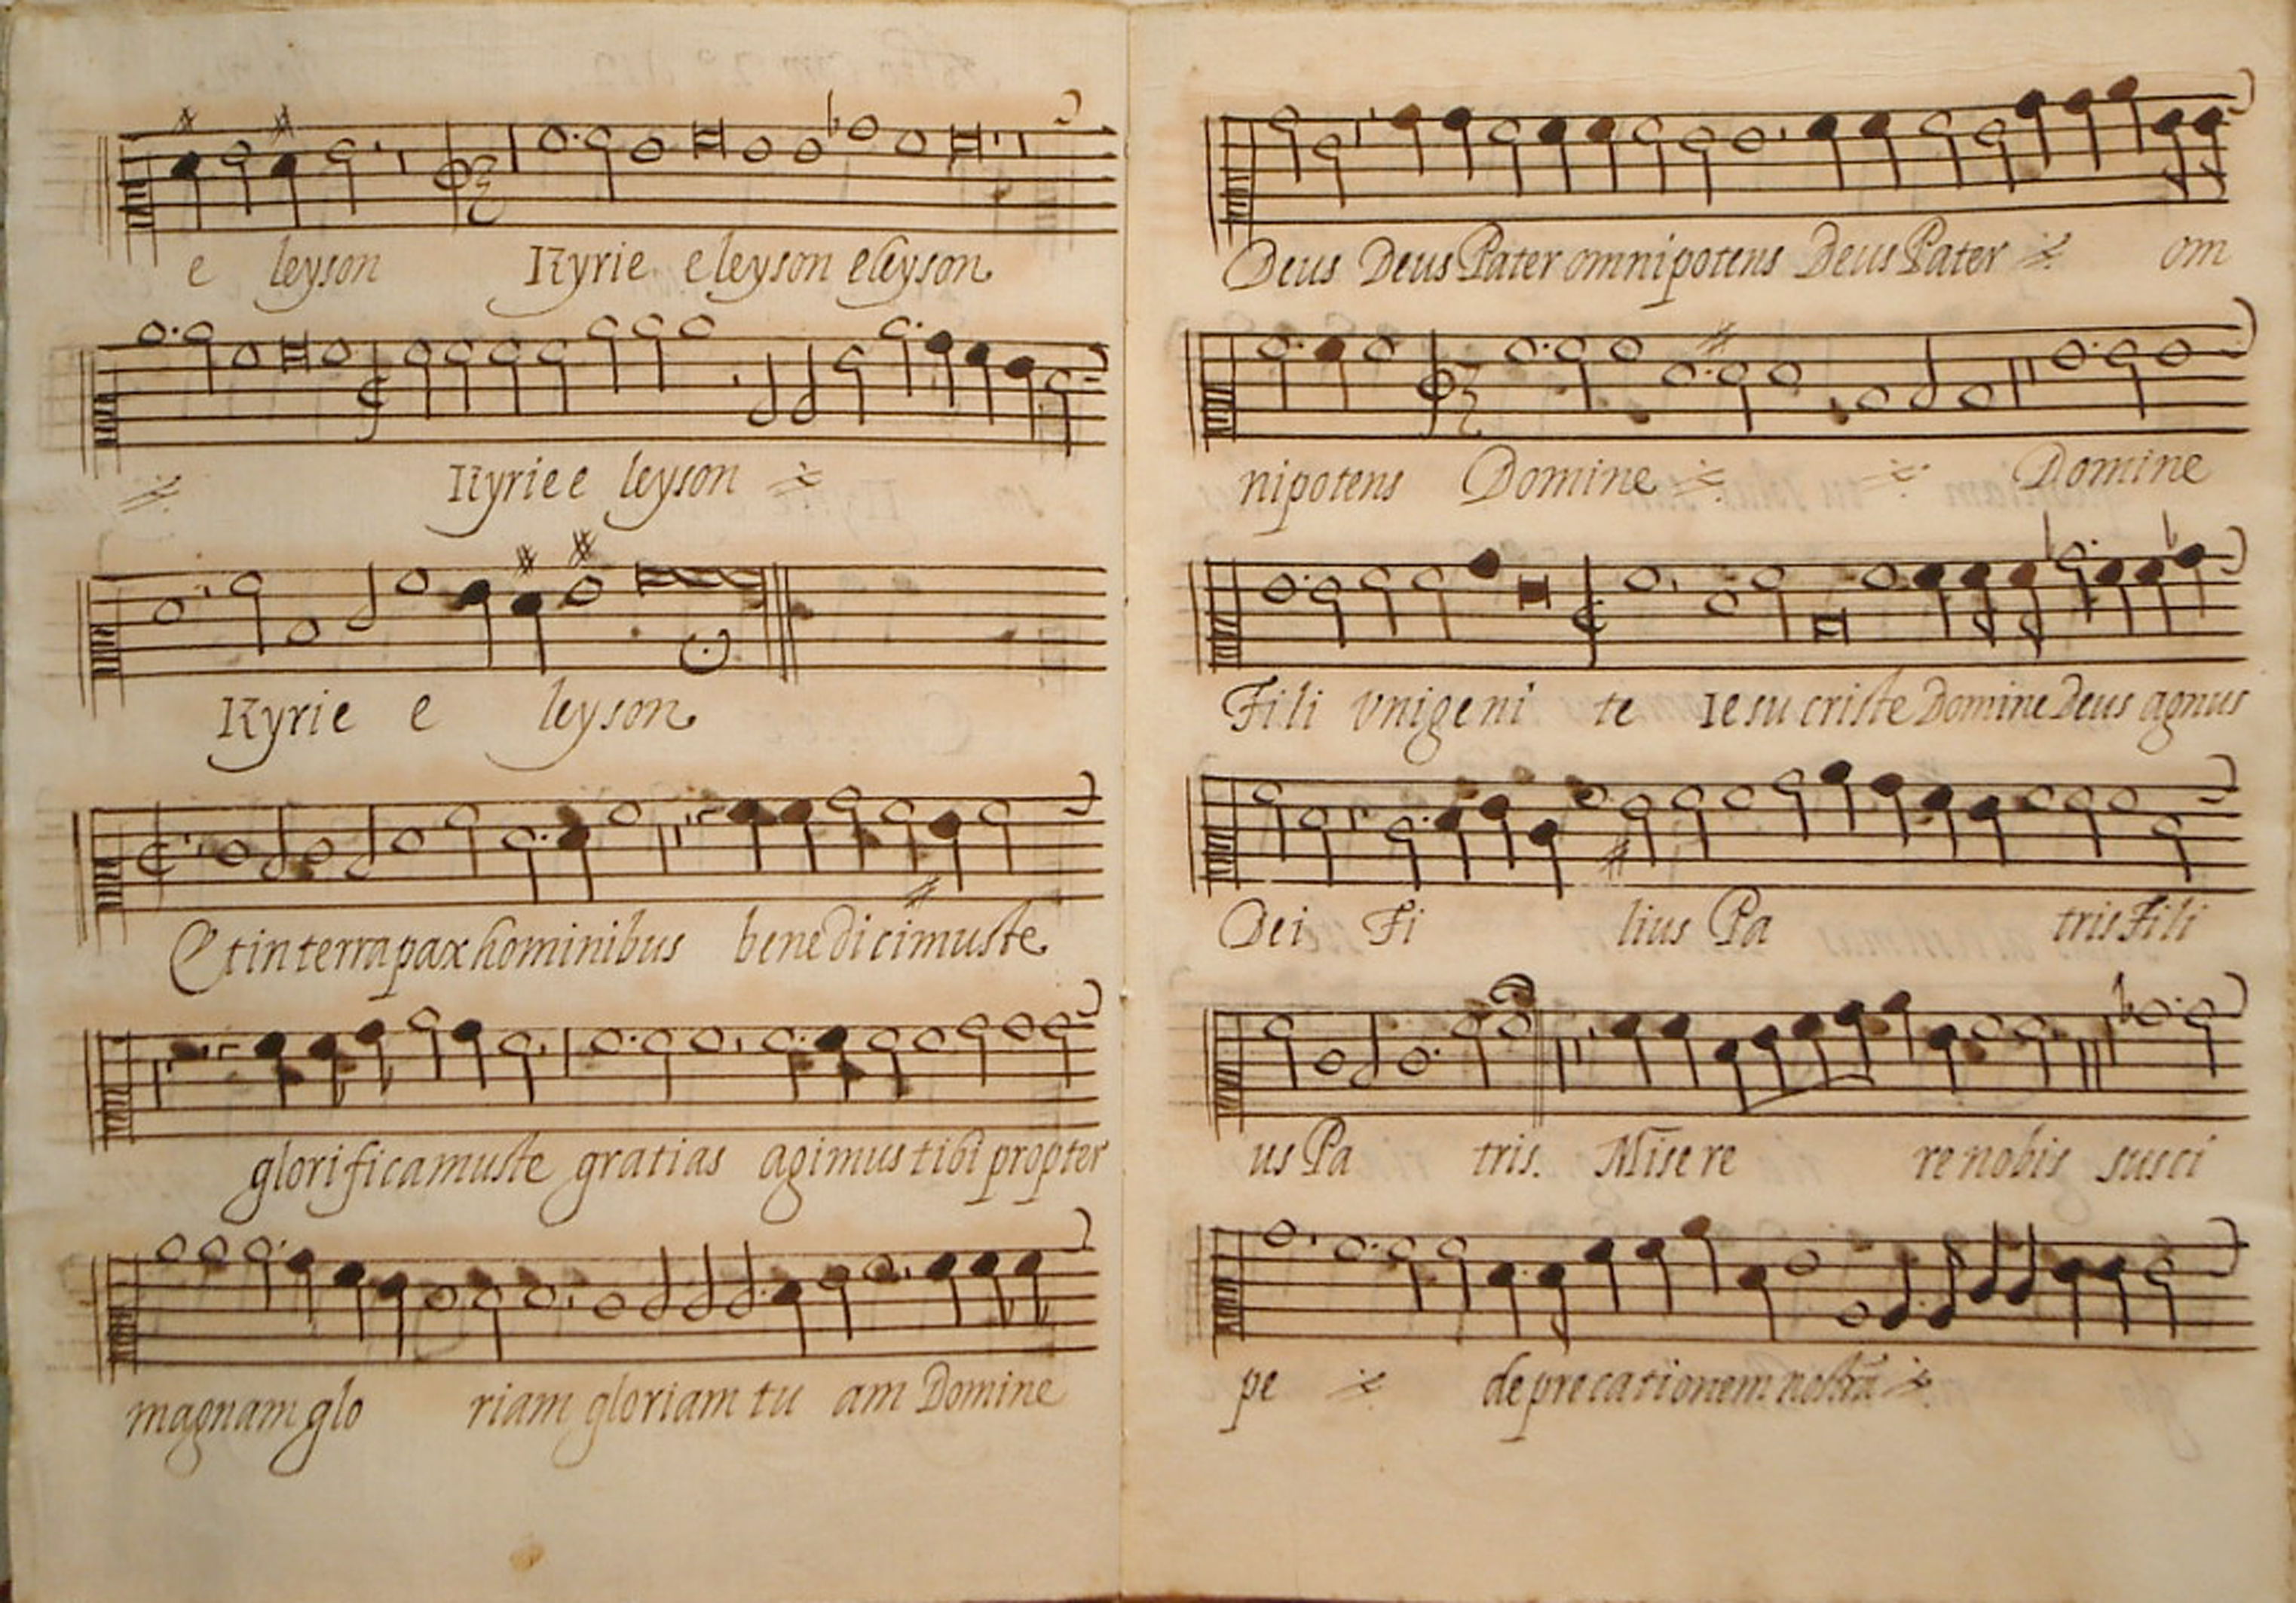 e leyson Kyrie eleyson eleyson
Kyrie e leyson
Kyrie e leyson
Et in terra pax hominibus benedicimus te
glorificamus te gratias agimus tibi propter
magnam glo riam gloriam tu am Domine
Deus Deus Pater omnipotens Deus Pater om
nipotens Domine Domine
Fili vnigeni te Iesu criste Domine Deus agnus
Dei Fi lius Pa tris Fili
us Pa tris. Misere re nobis susci
pe deprecationem nostrã